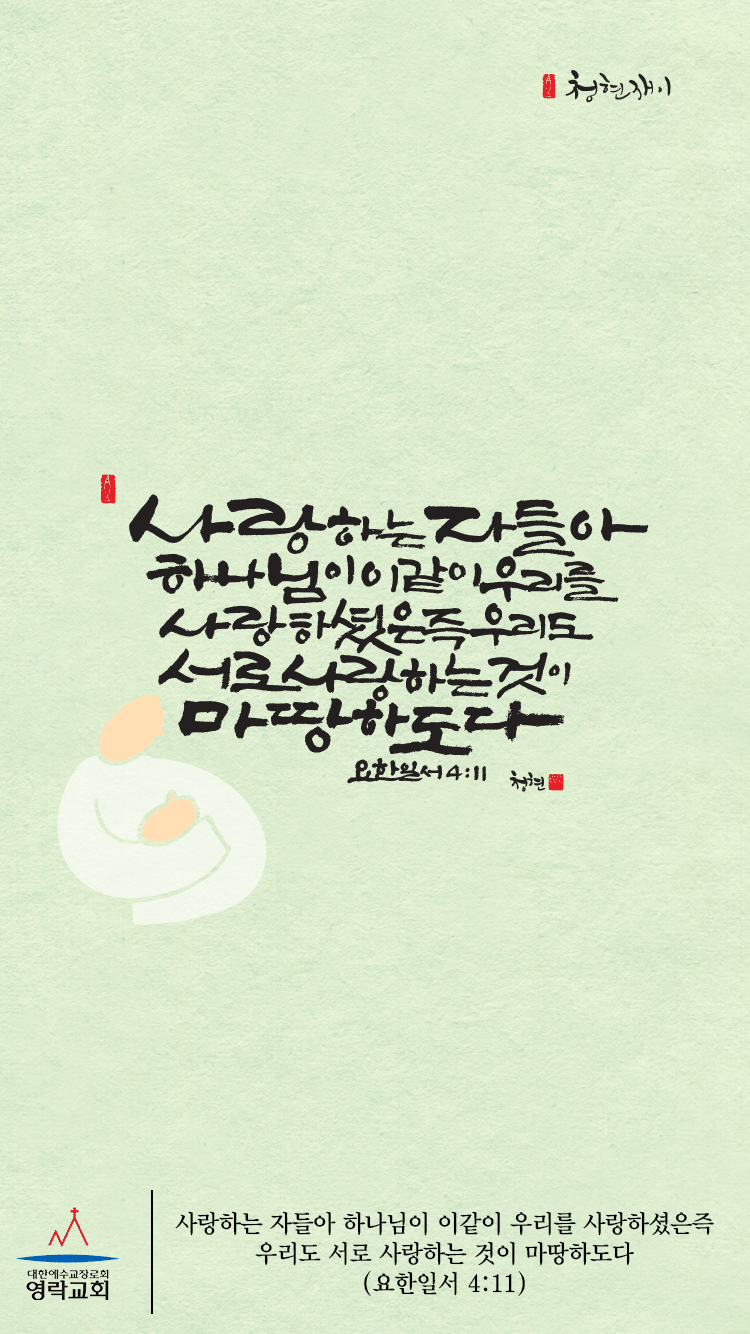 청현재이
사랑하는 자들아
하나님이 이같이 우리를
사랑하셨은즉 우리도
서로 사랑하는 것이
마땅하도다
요한일서 4:11
청현
대한예수교장로회
영락교회
사랑하는 자들아 하나님이 이같이 우리를 사랑하셨은즉
우리도 서로 사랑하는 것이 마땅하도다
(요한일서 4:11)